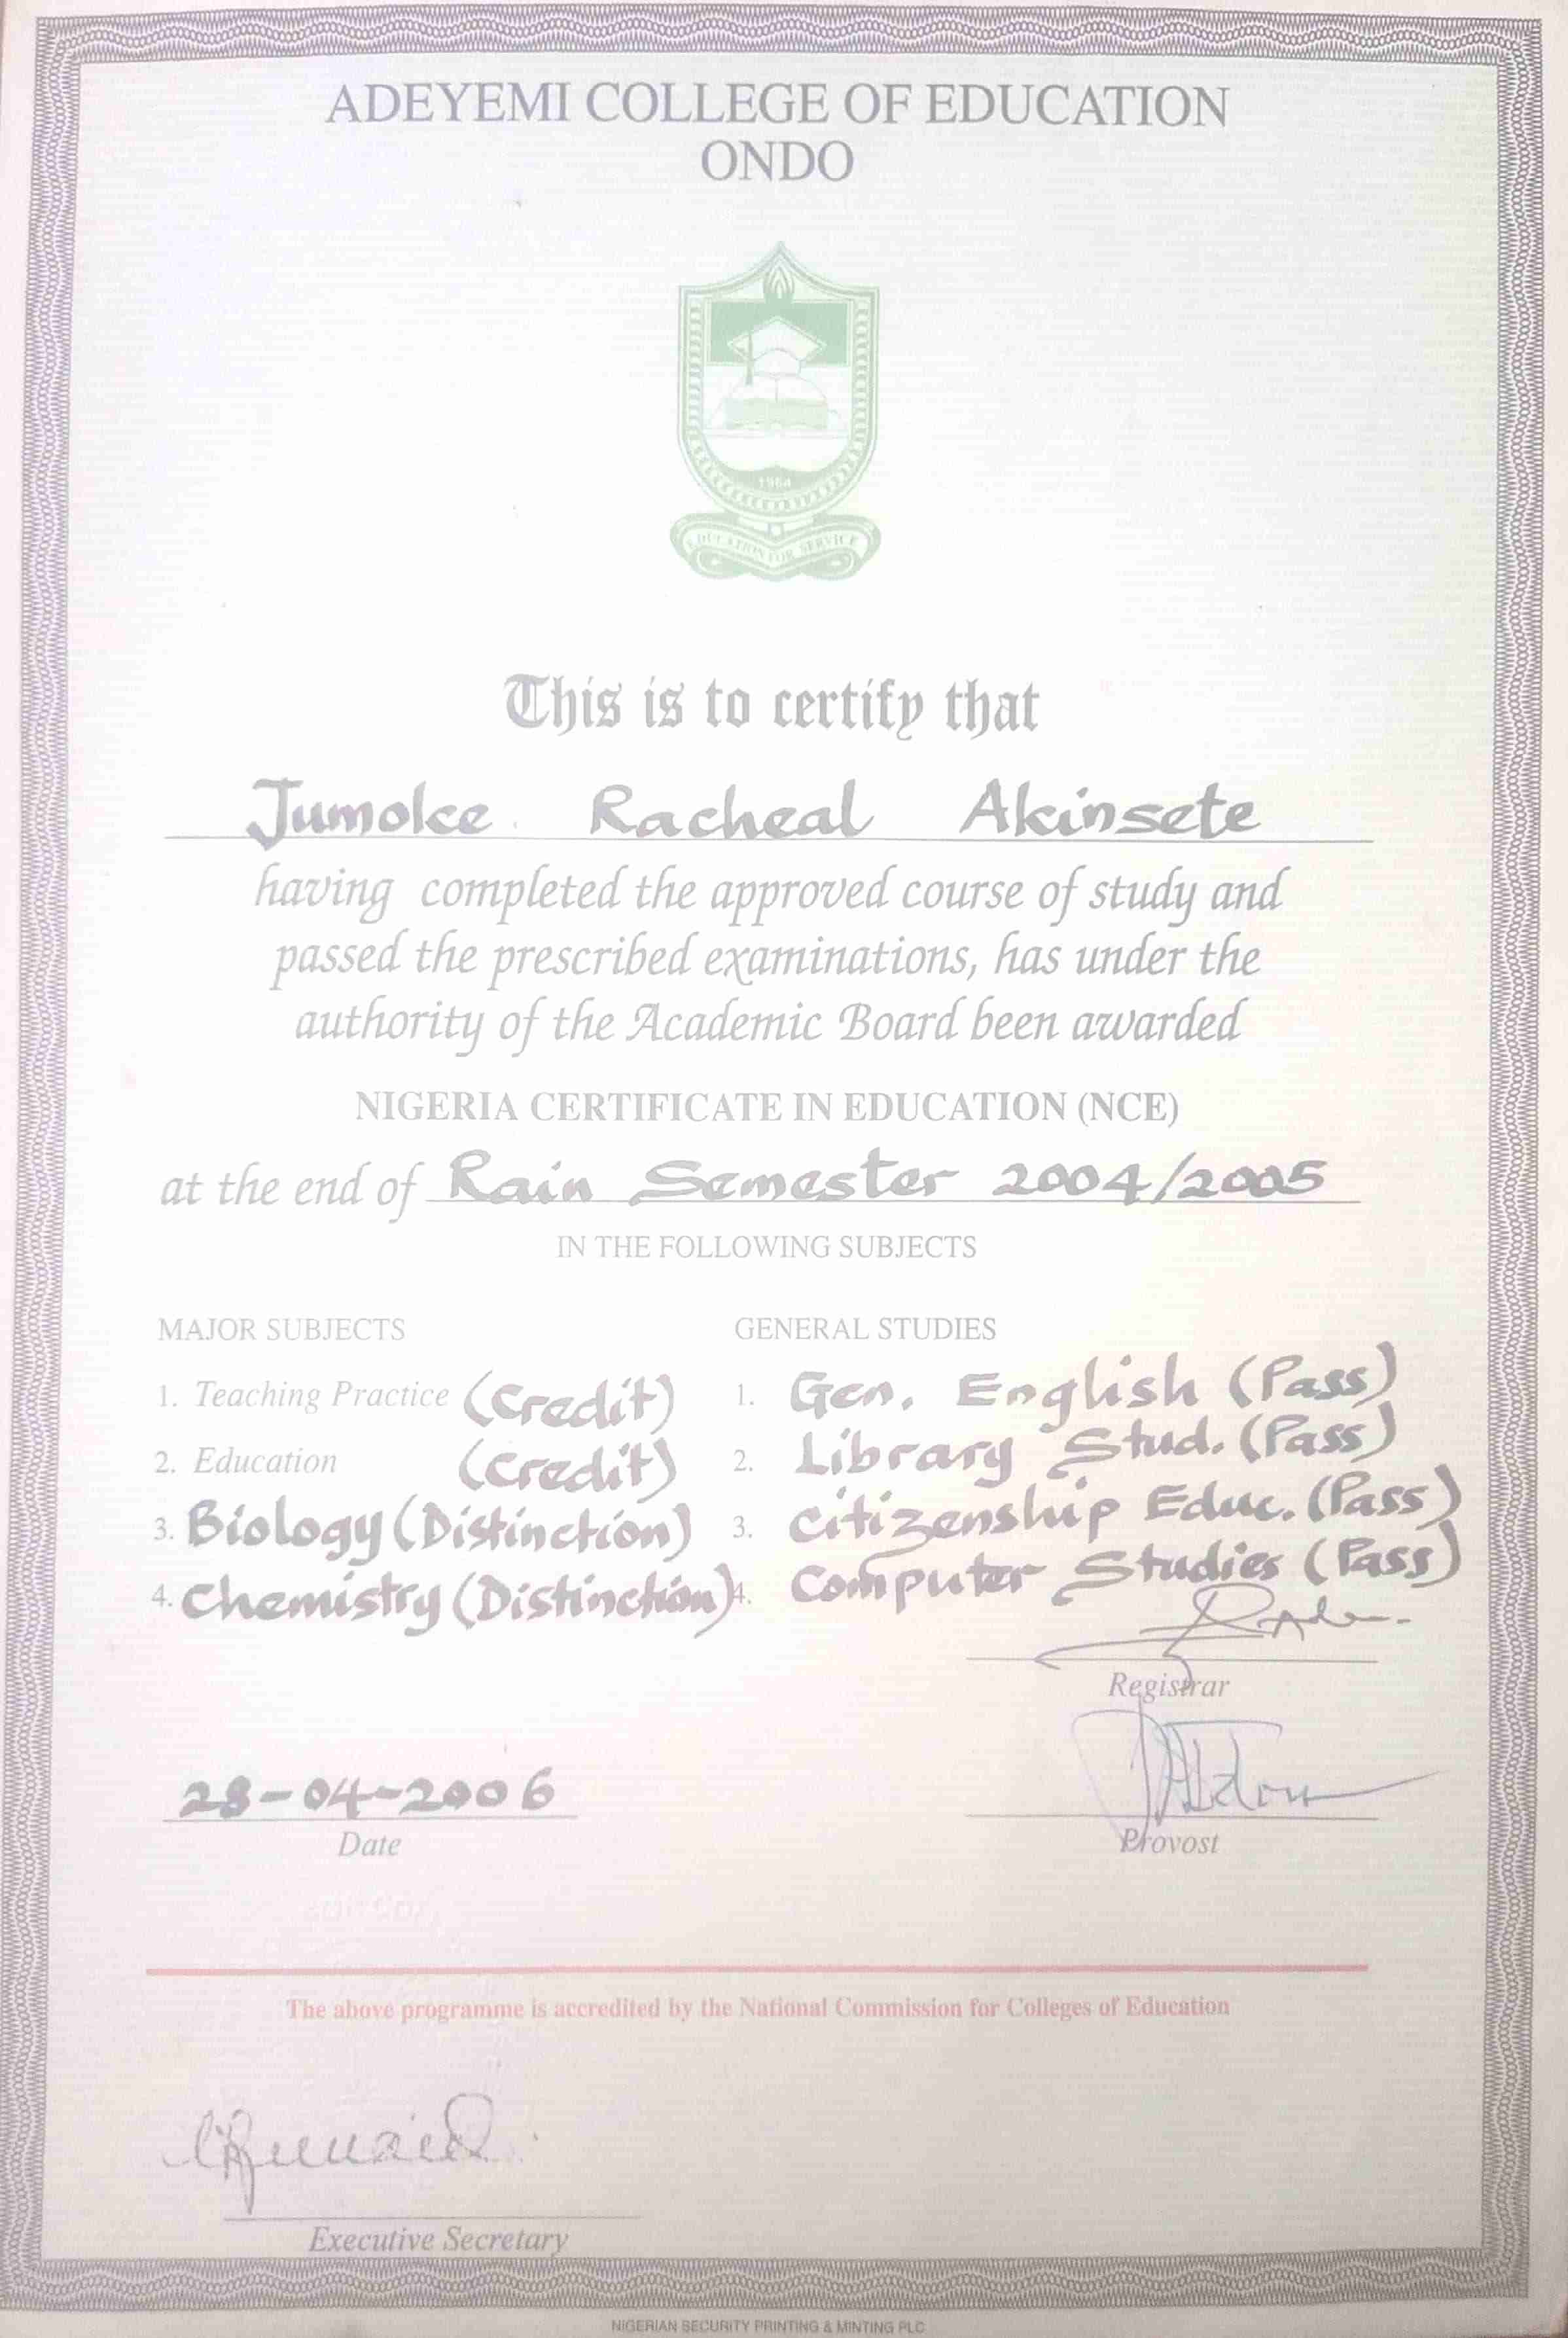 ADEYEMI COLLEGE OF EDUCATION
ONDO
1964
EDUCATION FOR SERVICE
This is to certify that
Jumoke Racheal Akinsete
having completed the approved course of study and
passed the prescribed examinations, has under the
authority of the Academic Board been awarded
NIGERIA CERTIFICATE IN EDUCATION (NCE)
at the end of Rain Semester 2004/2005
IN THE FOLLOWING SUBJECTS
MAJOR SUBJECTS
1. Teaching Practice (Credit)
2. Education (Credit)
3. Biology (Distinction)
4. Chemistry (Distinction)
GENERAL STUDIES
1. Gen. English (Pass)
2. Library Stud. (Pass)
3. Citizenship Educ. (Pass)
4. Computer Studies (Pass)
Registrar
28-04-2006
Date
Provost
The above programme is accredited by the National Commission for Colleges of Education
Executive Secretary
NIGERIAN SECURITY PRINTING & MINTING PLC